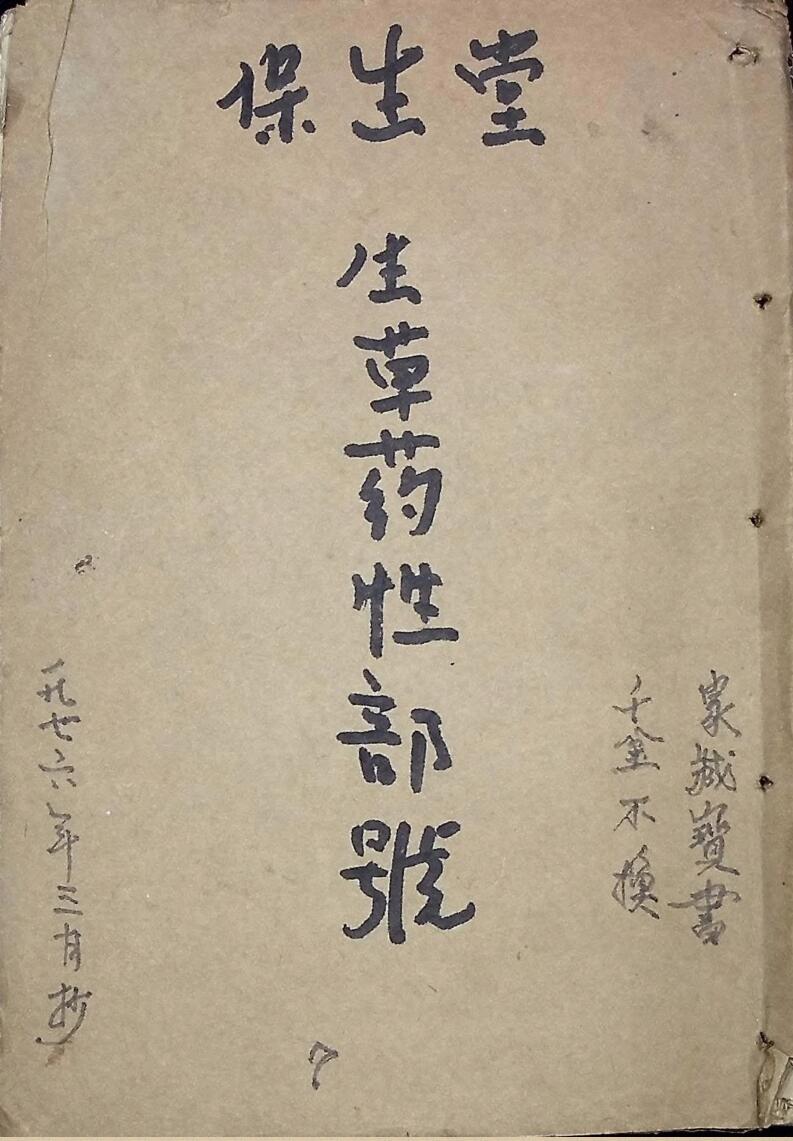 保生堂
生草药性部號
家藏寶書
千金不換
一九七六年三月抄
7